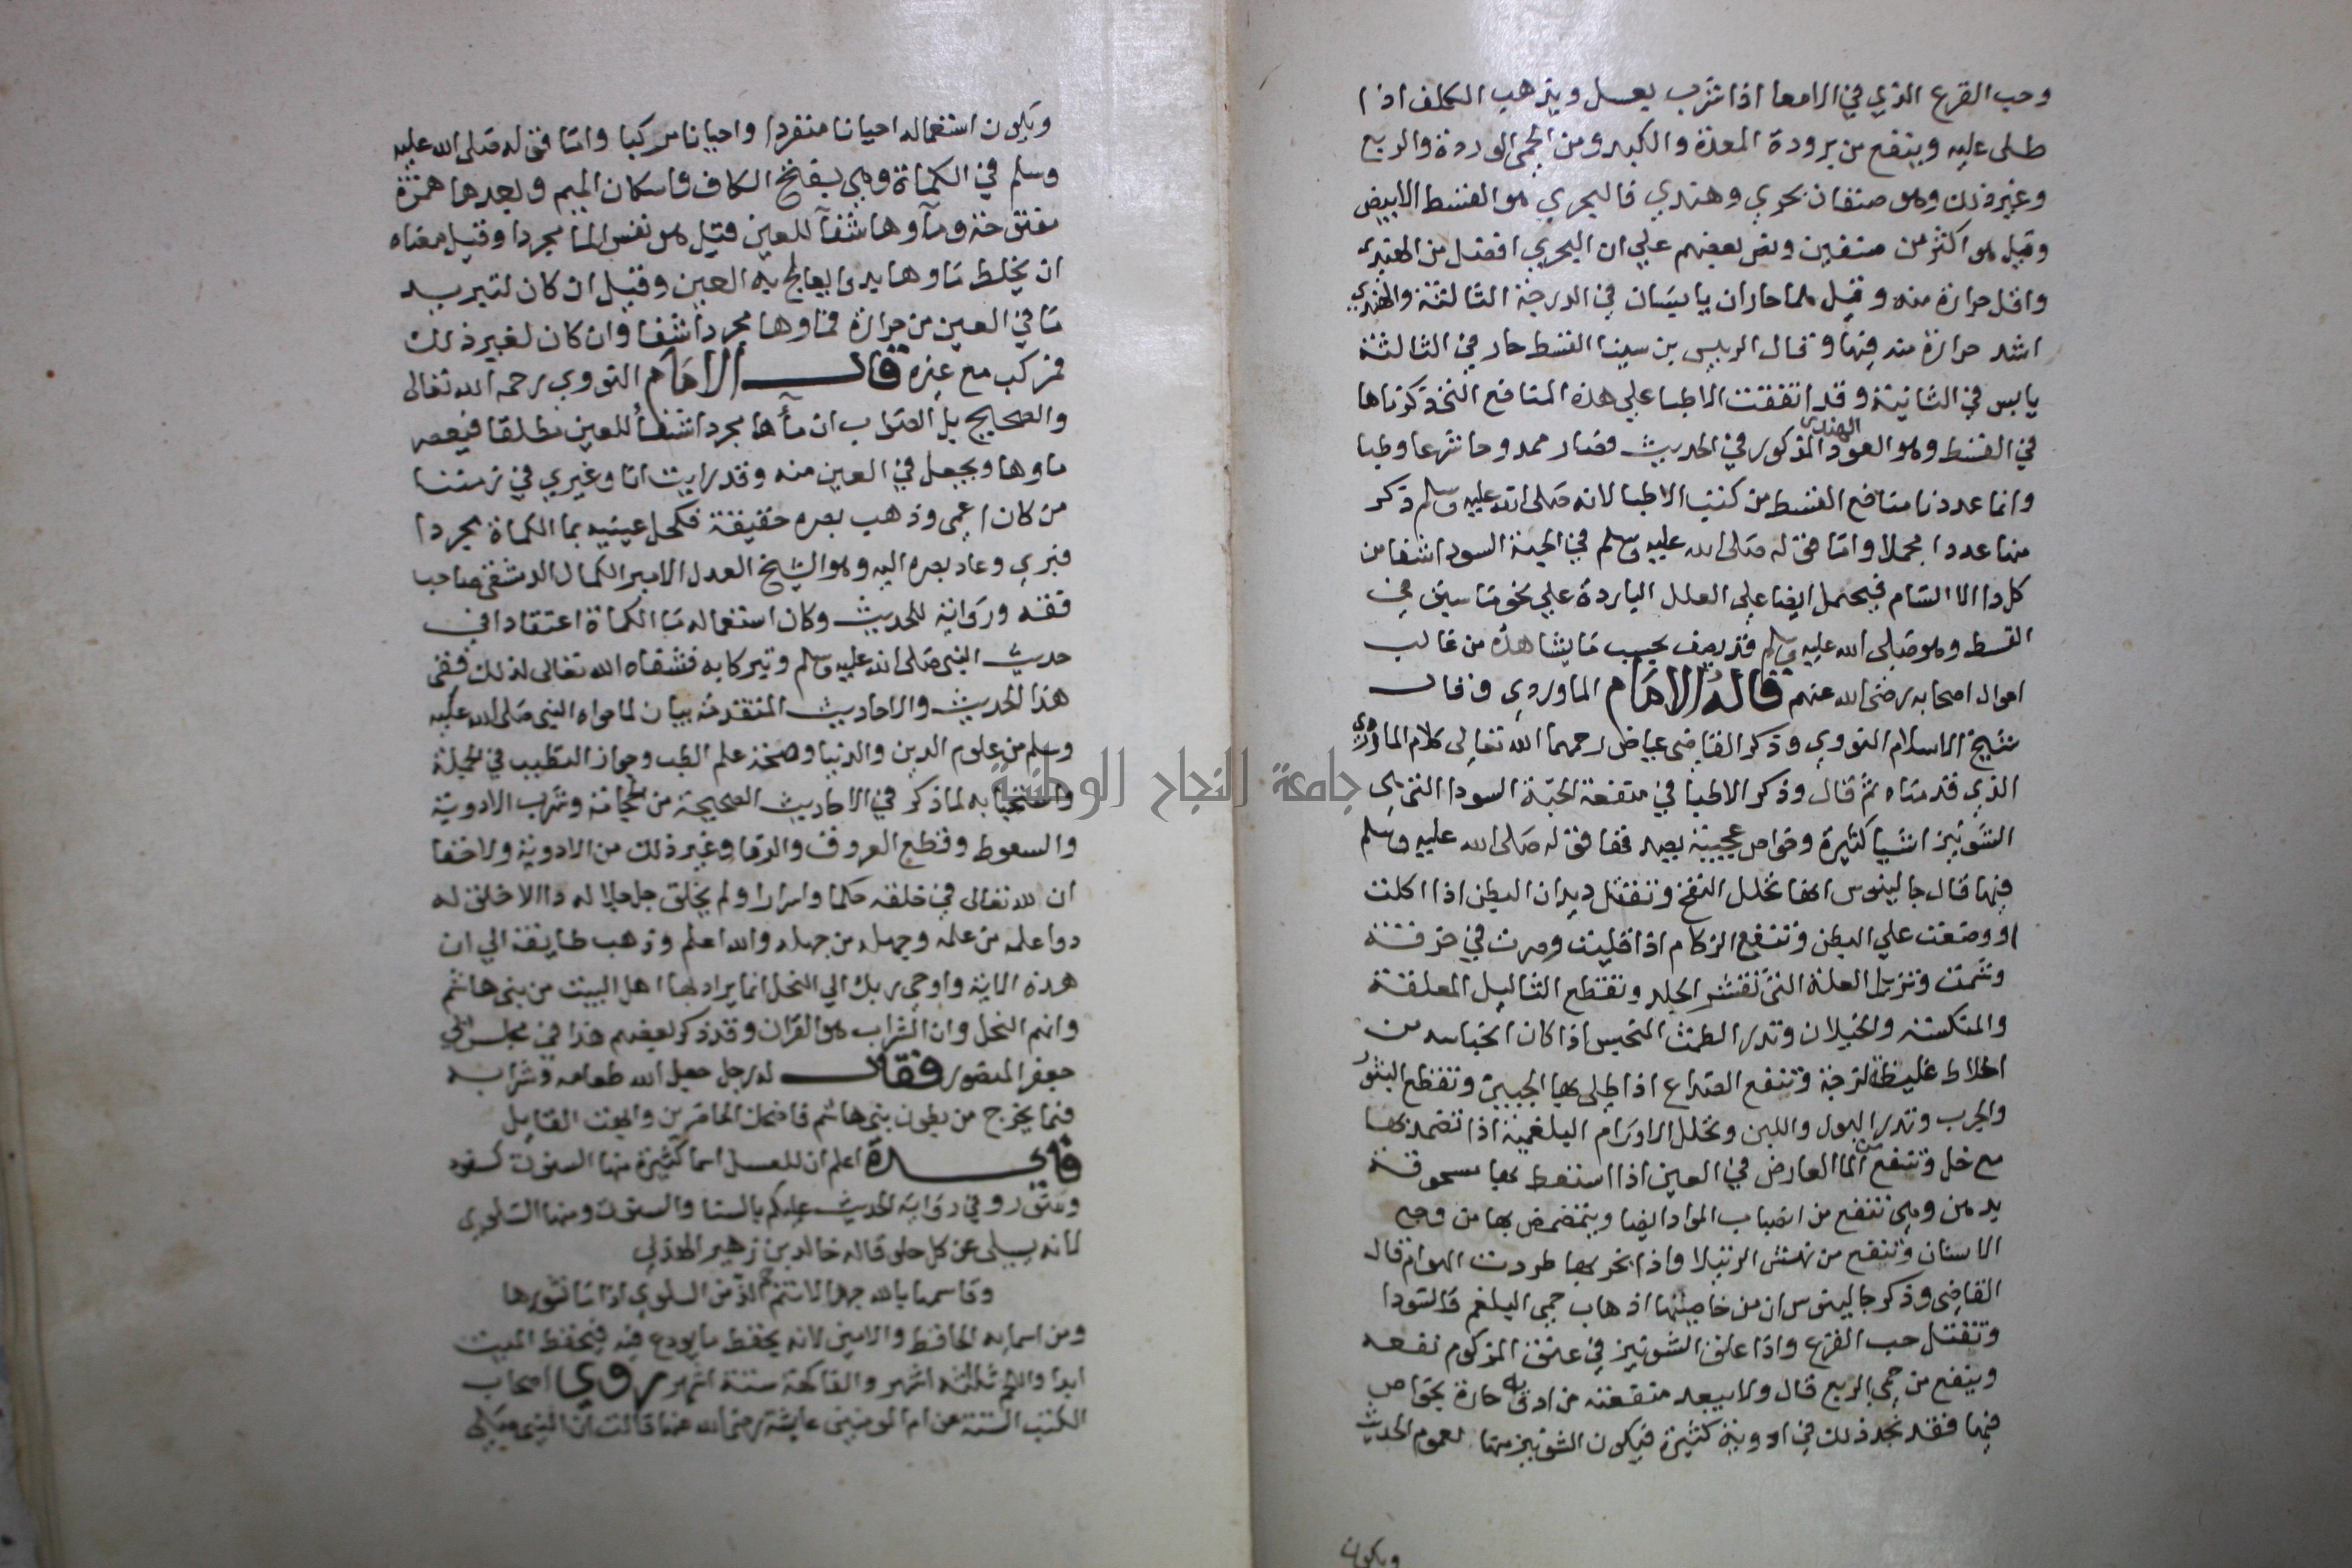 وحب القرع الذي في الامعا اذا شرب بعسل ويذهب الكلف اذا
طلى عليه وينفع من برودة المعدة والكبد ومن الحمى الوردة والربع
وغير ذلك وهو صنفان بحري وهندي فالبحري هو القسط الابيض
وقيل هو اكثر من صنفين ونص بعضهم علي ان البحري افضل من الهندي
واقل حرارة منه وقيل هما حاران يابسان في الدرجة الثالثة والهندي
اشد حرارة منه فيها وقال الريس بن سينا القسط حار في الثالثة
يابس في الثانية وقد اتفقت الاطبا علي هذه المنافع التي ذكرناها
في القسط وهو العود الهندي المذكور في الحديث فصار ممدوحا شرعا وطبا
وانما عددنا منافع القسط من كتب الاطبا لانه صلى الله عليه وسلم ذكر
منها عددا مجملا واما قوله صلى الله عليه وسلم في الحبة السودا شفا من
كل دا الا السام فيحمل ايضا علي العلل الباردة علي نحو ما سبق في
القسط وهو صلى الله عليه وسلم قد يصف بحسب ما يشاهده من غالب
احوال اصحابه رضى الله عنهم قاله الامام الماوردي وقال
شيخ الاسلام النووي وذكر القاضى عياض رحمهما الله تعالى كلام الماوردي
الذي قدمناه ثم قال وذكر الاطبا في منفعة الحبة السودا التي هي
الشونيز اشيا كثيرة وخواص عجيبة يصدقها قوله صلى الله عليه وسلم
فيها قال جالينوس انها تحلل النفخ وتقتل ديدان البطن اذا اكلت
او وضعت علي البطن وتنفع الزكام اذا قليت وصرت في خرقة
وشمت وتزيل العلة التي تقشر الجلد وتقطع الثاليل المعلقة
والمنكسة والخيلان وتدر الطمث المنحبس اذا كان انحباسه من
اخلاط غليظة لزجة وتنفع الصداع اذا طلى بها الجبين وتقطع البثور
والجرب وتدر البول واللبن وتحلل الاورام البلغمية اذا تضمد بها
مع خل وتنفع من الما العارض في العين اذا استعط بها مسحوقة
بدهن وهي تنفع من انصباب المواد ايضا ويتمضمض بها من وجع
الاسنان وتنفع من نهش الرتيلا واذا بخر بها طردت الهوام قال
القاضى وذكر جالينوس ان من خاصيتها اذهاب حمى البلغم والسودا
وتقتل حب القرع واذا علق الشونيز في عنق المزكوم نفعه
وينفع من حمى الربع قال ولا يبعد منفعته من ادوية حارة بخواص
فيها فقد نجد ذلك في ادوية كثيرة فيكون الشونيز منها لعموم الحديث
ويكون
ويكون استعماله احيانا منفردا واحيانا مركبا واما قوله صلى الله عليه
وسلم في الكماة وهي بفتح الكاف واسكان الميم وبعدها همزة
مفتوحة وماوها شفا للعين قيل هو نفس الما مجردا وقيل معناه
ان يخلط ماوها بدوا يعالج به العين وقيل ان كان لتبريد
ما في العين من حرارة فماوها مجردا شفا وان كان لغير ذلك
فمركب مع غيره قال الامام النووي رحمه الله تعالى
والصحيح بل الصواب ان مآها مجردا شفا للعين مطلقا فيعصر
ماوها ويجعل في العين منه وقد رايت انا وغيري في زمننا
من كان اعمى وذهب بصره حقيقة فكحل عينيه بما الكماة مجردا
فبري وعاد بصره اليه وهو الشيخ العدل الامير الكمال الدمشقي صاحب
فقه ورواية للحديث وكان استعماله ما الكماة اعتقادا في
حديث النبي صلى الله عليه وسلم وتبركا به فشفاه الله تعالى لذلك ففي
هذا الحديث والاحاديث المتقدمة بيان لما حواه النبي صلى الله عليه
وسلم من علوم الدين والدنيا وصحة علم الطب وجواز التطبب في الجملة
واستحبابه لما ذكر في الاحاديث الصحيحة من الحجامة وشرب الادوية
والسعوط وقطع العروق والرقا وغير ذلك من الادوية ولا خفا
ان لله تعالى في خلقه حكما واسرارا ولم يخلق جل جلاله دا الا خلق له
دوا علمه من علمه وجهله من جهله والله اعلم وذهب طايفة الي ان
هذه الاية واوحي ربك الي النحل انما يراد بها اهل البيت من بني هاشم
وانهم النحل وان الشراب هو القران وقد ذكر بعضهم هذا في مجلس ابي
جعفر المنصور فقال له رجل جعل الله طعامه وشرابه
فيما يخرج من بطون بني هاشم فاضحك الحاضرين وابهت القايل
فايدة اعلم ان للعسل اسما كثيرة منها السنوت كسفود
وسنور وفي رواية الحديث عليكم بالسنا والسنوت ومنها السلوي
لانه يسلى عن كل حلو قاله خالد بن زهير الهذلي
وقاسمها بالله جهرا لانتم الذ من السلوي اذا ما نشورها
ومن اسمايه الحافظ والامين لانه يحفظ ما يودع فيه فيحفظ الميت
ابدا واللحم ثلثة اشهر والفاكهة ستة اشهر روي اصحاب
الكتب الستة عن ام المومنين عايشة رضى الله عنها قالت ان النبي صلى
جامعة النجاح الوطنية